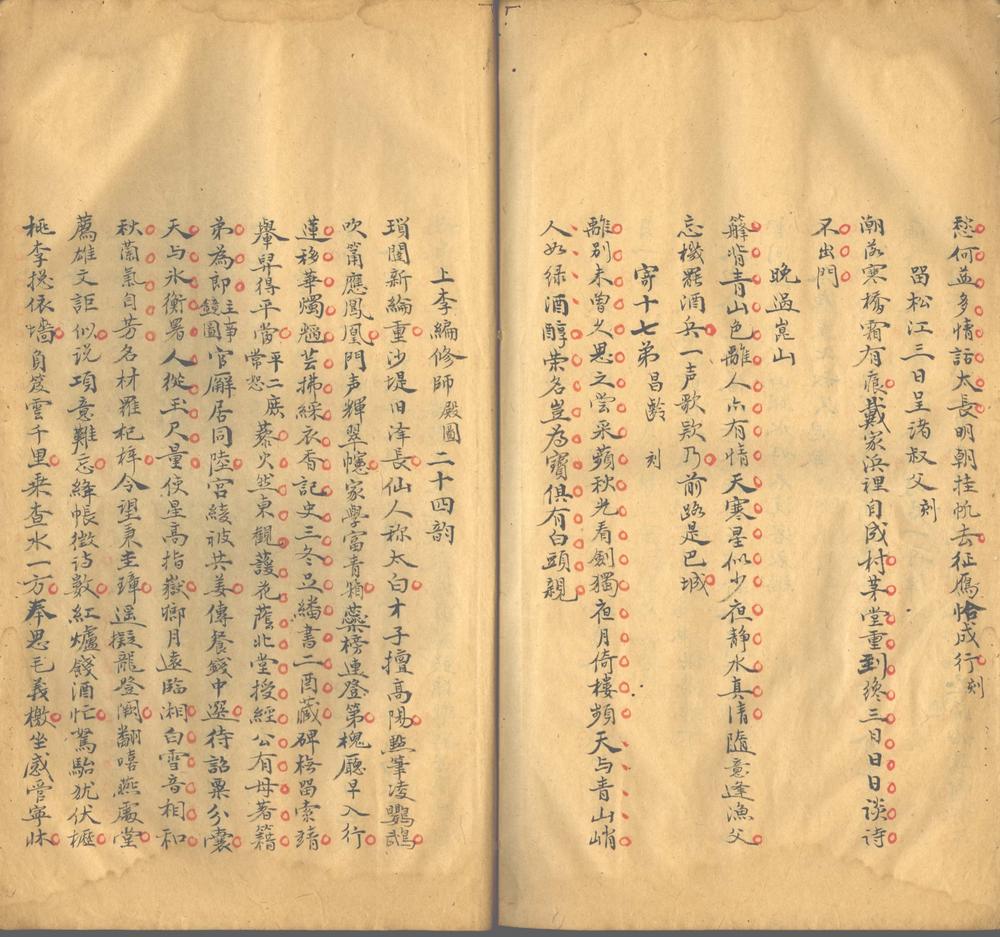 愁何益多情話太長明朝挂帆去征鴈恰成行刻
畱松江三日呈渚叔父刻
潮落寒橋霜有痕戴家浜裡自成村茅堂重到纔三日日日談诗
不出門
晚過崑山
篷背青山色離人亦有情天寒星似少夜静水真清隨意逢漁父
忘機罷酒兵一声歌欵乃前路是巴城
寄十七弟昌齡刻
離別未曽久思之尝采蘋秋光看劍獨夜月倚樓頻天与青山峭
人如绿酒醇荣名豈為寳俱有白頭親
上李編修師殿圖二十四韵
瑣闥新綸重沙堤旧泽長仙人称太白才子擅高陽㸃筆凌鸚鵡
吹簫應鳳凰門声輝翠幰家學富青箱蘂榜連登第槐廳早入行
蓮移華燭𨓏芸拂綵衣香記史三冬足繙書二酉藏碑橅畱索靖
轝舁得平當平二庶常恕藜火然東觀蘐花蔭北堂授經公有母著籍
弟為郎主事鐩圖官廨居同陸宮綾被共姜傳餐錢中選待詔粟分囊
天与氷衡署人從玉尺量使星高指嶽鄉月遠臨湘白雪音相和
秋蘭氣自芳名材羅杞梓令望秉圭璋遥擬龍登闕翻嘻燕處堂
薦雄文詎似说項意難忘絳帳徵诗数紅爐餞酒忙駑駘犹伏櫪
桃李揔依墻負笈雲千里乗查水一方奉思毛義檄坐感管寧牀